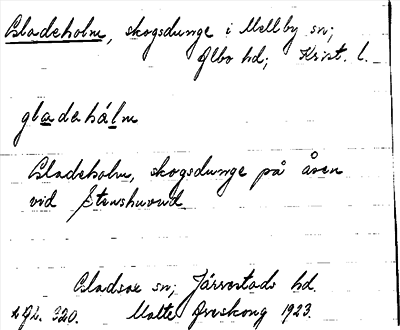 Gladeholm, skogsdunge i Mellby sn;
Albo hd; Krist. l.
gladehålm
Gladeholm, skogsdunge på åsen
vid Stenshuvud
Gladsax sn; Järrestads hd.
320. Malte Areskong 1923.